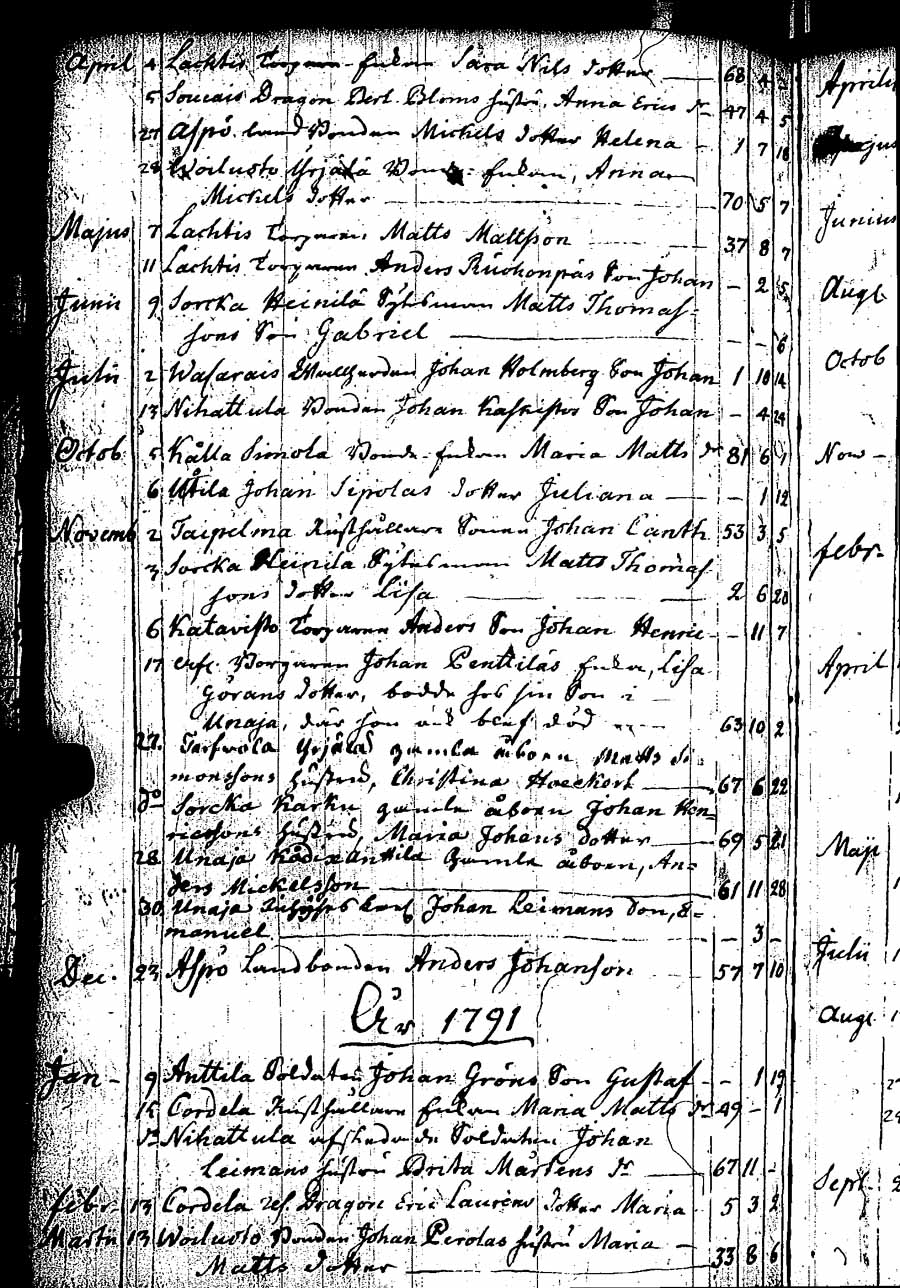 April 4 Lachtis Torparen Enkan Sara Nils dotter 68 4
5 Soucais Dragon Berl. Bloms hustru, Anna Erics dr 47 4 5
27 Aspö land Bonden Michels dotter Helena - 1 7 18
28 Woiluoto Yrjälä Bonde-Enkan, Anna
Michels dotter 70 5 7
Majus 7 Lachtis Torparen Matts Mattsson 37 8 7
11 Lachtis Torparen Anders Ruohonpäs Son Johan - 2 5
Junii 9 Sorcka Heinilä Sytnsman Matts Thomas-
sons Son Gabriel - - 6
Julii 2 Wasarais Johan Holmberg Son Johan 1 10 14
13 Nihattula Bonden Johan Son Johan - 4 24
Octob 5 Kålla Simola Bonde-Enkan Maria Matts dr 81 6 1
6 Utila Johan Sipolas dotter Juliana - 1 12
Novemb 2 Taipelma Rusthållare Sonen Johan Canth 53 3 5
3 Sorcka Heinila Sytnsman Matts Thomas
sons dotter Lisa 2 6 20
6 Katavisto Torparen Anders Son Johan Henric - 11 7
17 Borgaren Johan Penttiläs Enka, Lisa
Görans dotter, bodde hos sin Son i
Unaja, där hon ock blef död 63 10 2
27. Tarfwola Yrjälä gamla åboen Matts Si
monssons hustru, Christina Hoeckert 67 6 22
do Sorcka Karku gamla åboen Johan Hen=
ricssons hustru, Maria Johans dotter 69 5 21
28 Unaja Anttila Gamla åboen, An=
ders Mickelsson 61 11 28
30 Unaja Johan Leimans Son, E=
manuel - 3 -
Dec. 23 Aspö Landbonden Anders Johanson 57 7 10
År 1791
Jan - 9 Anttila Soldaten Johan Gröns Son Gustaf - - 1 19
15 Cordela Rusthållare Enkan Maria Matts dr 49 - 1
do Nihattula afskedade Soldaten Johan
Leimans hustru Brita Mårtens dr 67 11 -
febr 13 Cordela ref. Dragon Eric Laurens dotter Maria 5 3 2
Martii 13 Woiluoto Bonden Johan Perolas hustru Maria
Matts dotter 33 8 6
Aprilis
Junius
Augt
Octob
Nov -
febr.
April
Maji
Julii 1
Augt 1
Sept. 2